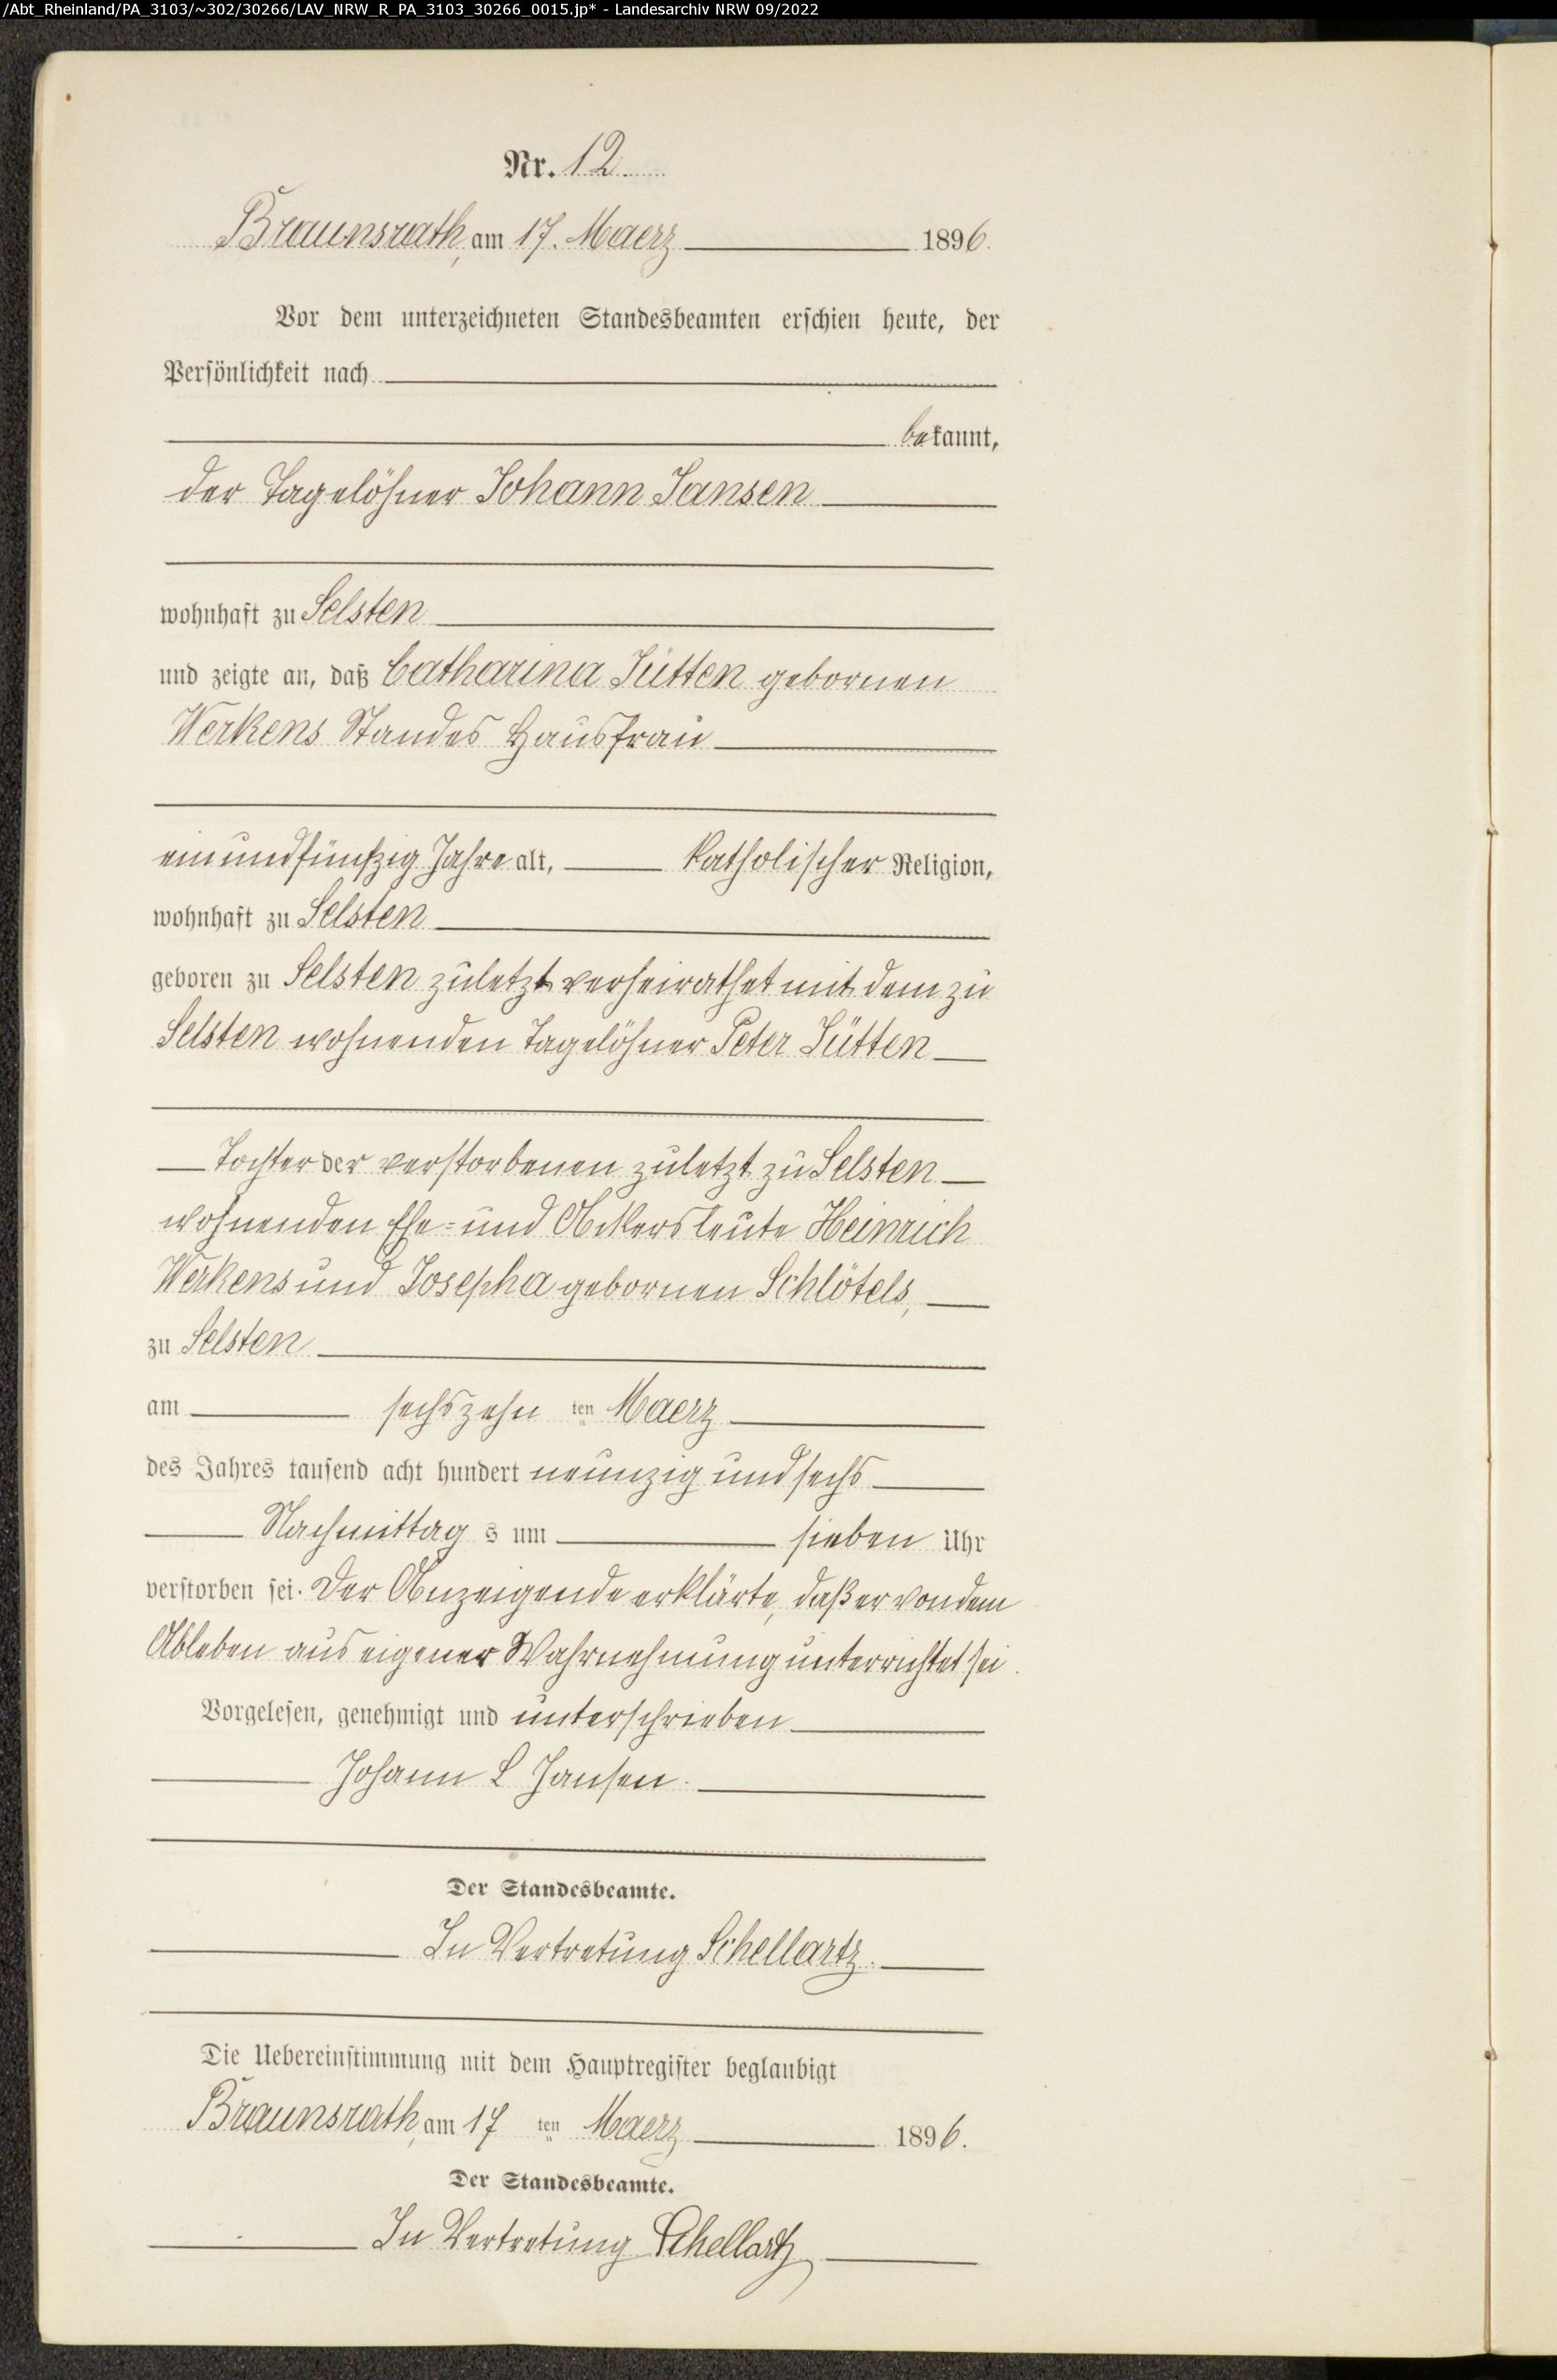 /Abt_Rheinland/PA_3103/~302/30266/LAV_NRW_R_PA_3103_30266_0015.jp* - Landesarchiv NRW 09/2022
Nr. 12
Braunsrath, am 17. Maerz 1896.
Vor dem unterzeichneten Standesbeamten erschien heute, der
Persönlichkeit nach
bekannt,
der Tagelöhner Johann Jansen
wohnhaft zu Selsten
und zeigte an, daß Catharina Jütten gebornen
Werkens Standes Hausfrau
einundfünfzig Jahre alt, katholischer Religion,
wohnhaft zu Selsten
geboren zu Selsten zuletzt verheirathet mit dem zu
Selsten wohnenden Tagelöhner Peter Jütten
Tochter der verstorbenen zuletzt zu Selsten
wohnenden Ehe- und Ackersleute Heinrich
Werkens und Josepha gebornen Schlötels,
zu Selsten
am sechszehn ten Maerz
des Jahres tausend acht hundert neunzig und sechs
Nachmittag s um sieben Uhr
verstorben sei. Der Anzeigende erklärte, daß er von dem
Ableben aus eigener Wahrnehmung unterrichtet sei.
Vorgelesen, genehmigt und unterschrieben
Johann L Jansen.
Der Standesbeamte.
In Vertretung Schellartz.
Die Uebereinstimmung mit dem Hauptregister beglaubigt
Braunsrath, am 17 ten Maerz 1896.
Der Standesbeamte.
In Vertretung Schellartz